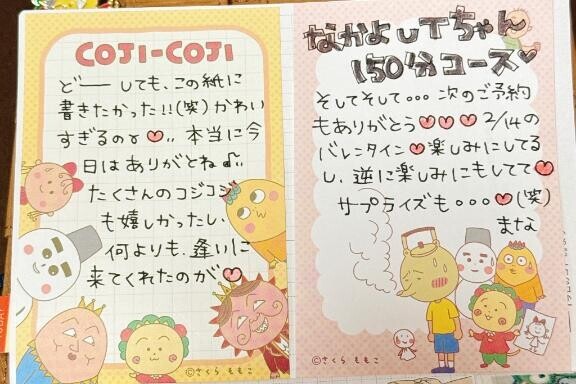 COJI-COJI
どーしても、この紙に
書きたかった!!(笑)かわい
すぎるのょ♡.. 本当に今
日はありがとね♪..
たくさんのコジコジ
も嬉しかったし、
何よりも、逢いに
来てくれたのが♡
©さくら ももこ
なかよしTちゃん
150分コース♡
そしてそして... 次のご予約
もありがとう♡♡♡ 2/14の
バレンタイン♡楽しみにしてる
し、逆に楽しみにもしてて♡
サプライズも...♡(笑)
まな
©さくら ももこ